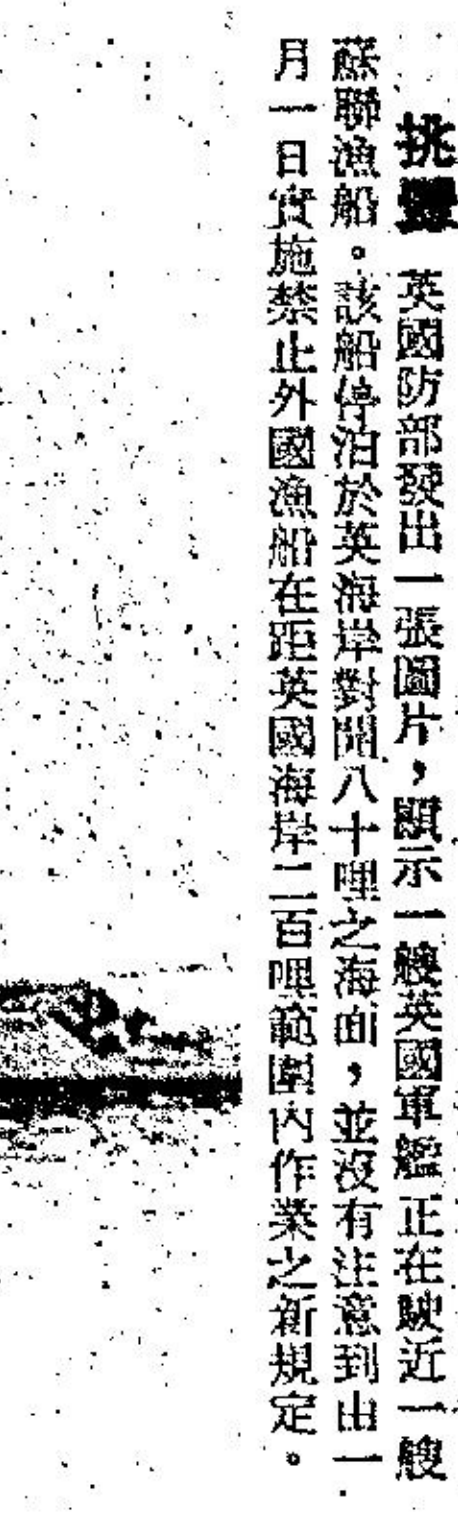 挑釁 英國防部發出一張圖片，顯示一艘英國軍艦正在駛近一艘
蘇聯漁船。該船停泊於英海岸對開八十哩之海面，並沒有注意到由一
月一日實施禁止外國漁船在距英國海岸二百哩範圍內作業之新規定。